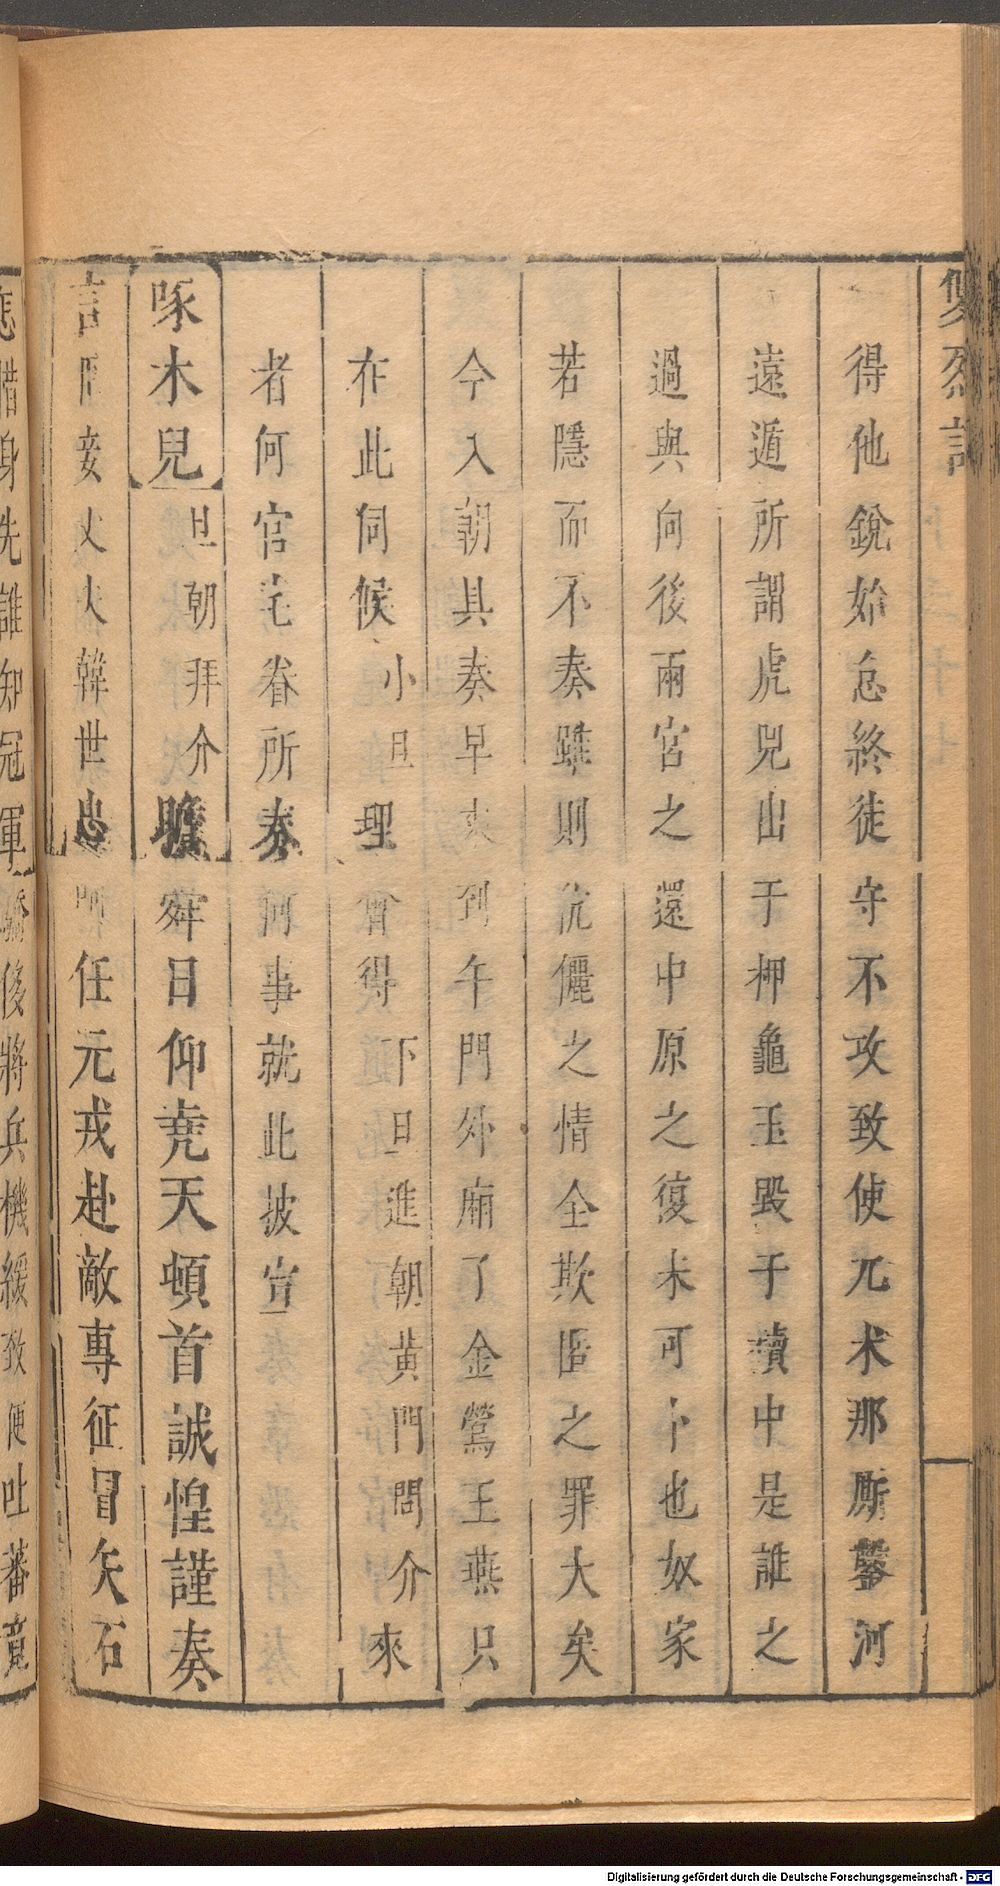 雙烈記
得他銳始怠終徒守不攻致使兀朮那厮鑿河
遠遁所謂虎兕出于柙龜玉毀于櫝中是誰之
過與向後兩宮之還中原之復未可卜也奴家
若隱而不奏雖則伉儷之情全欺匿之罪大矣
今入朝具奏早來到午門外廟了金鶯玉燕只
在此伺候小旦理會得下旦進朝黃門問介來
者何官宅眷所奏何事就此披宣
啄木兒旦朝拜介瞻舜日仰堯天頓首誠惶謹奏
言臣妾丈夫韓世忠任元戎赴敵專征冒矢石
惜身先誰知冠軍驕後將兵機緩致使吐蕃竟
Digitalisierung gefördert durch die Deutsche Forschungsgemeinschaft - DFG